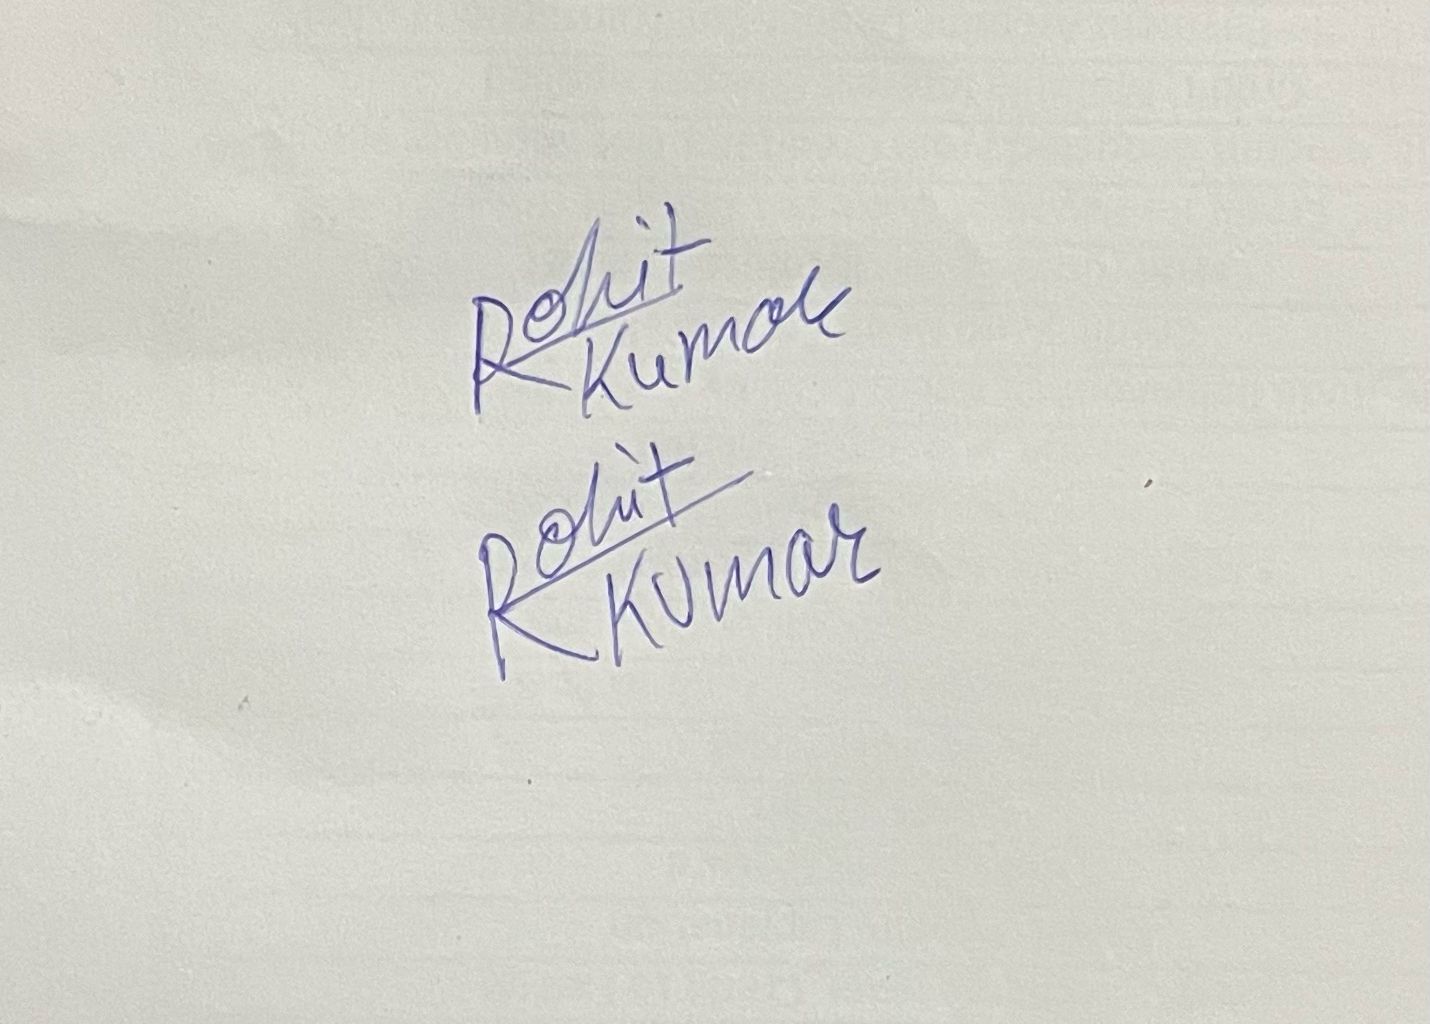 Rohit
Kumar
Rohit
Kumar